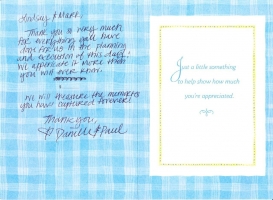 Lindsay & Mark,
Thank you so very much
for everything you have
done for us in the planning
and execution of this day!
We appreciate it more than
you will ever know.
We will treasure the memories
you have captured forever!
Thank you,
Danielle & Paul
Just a little something
to help show how much
you're appreciated.